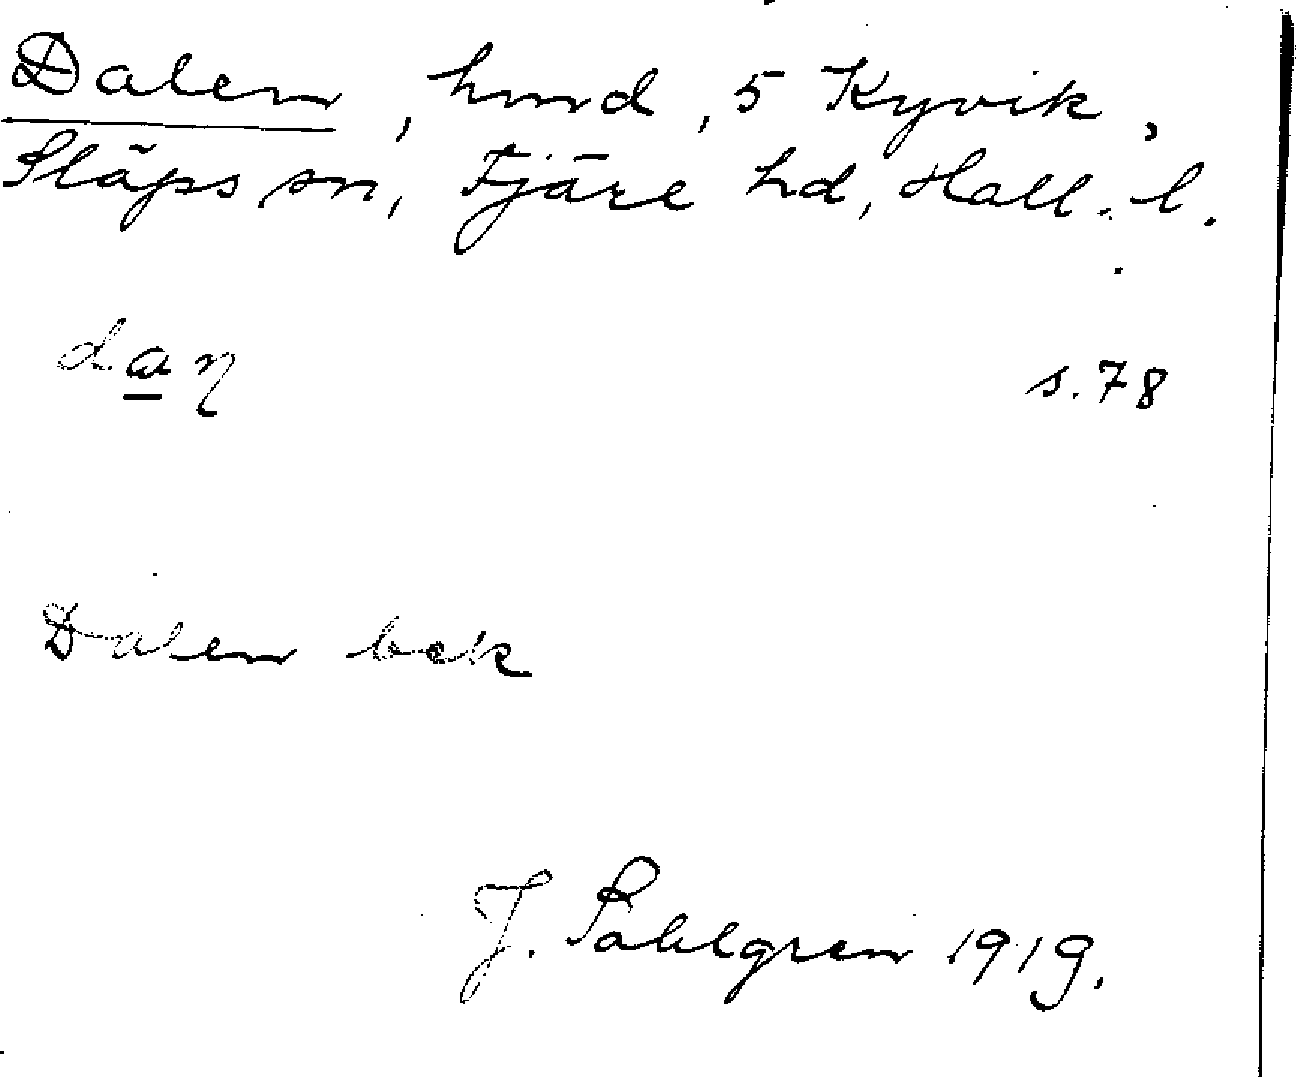 Dalen, hmd, 5 Kyvik,
Släps sn, Fjäre hd, Hall. l.
daŋ
s. 78
Dalen bek
J. Sahlgren 1919.